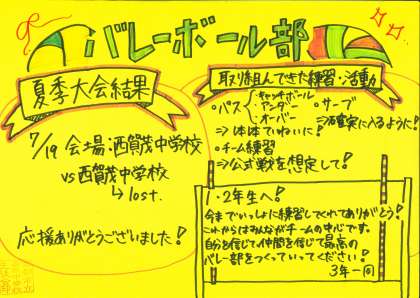 バレーボール部
夏季大会結果
7/19 会場・西賀茂中学校
vs西賀茂中学校
↳ lost.
応援ありがとうございました!
取り組んできた練習・活動
・パス キャッチボール
アンダー
オーバー
・サーブ
⇒確実に入るように!
⇒1本1本ていねいに!
・チーム練習
⇒公式戦を想定して!
1・2年生へ!
今までいっしょに練習してくれてありがとう!
これからはみんながチームの中心です。
自分を信じて、仲間を信じて最高の
バレー部をつくっていってください!
3年一同